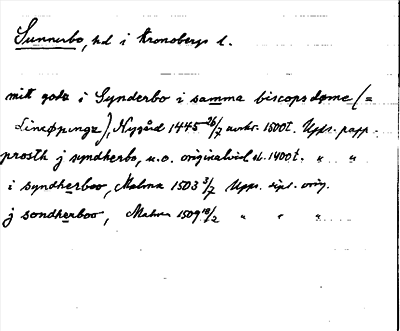 Sunnerbo, hd i Kronobergs l.
mitt godz i Synderbo i samma biscopsdøme (=
Lincøpungx), Nygård 1445 26/7 avskr. 1500t. Upps. papp.
prosth j syndherbo, u.o. originalvid sl. 1400t. " "
i syndherboo, Malma 1503 3/7 Upps. dipl. orig.
j sondherboo, Malma 1509 18/2 " " "